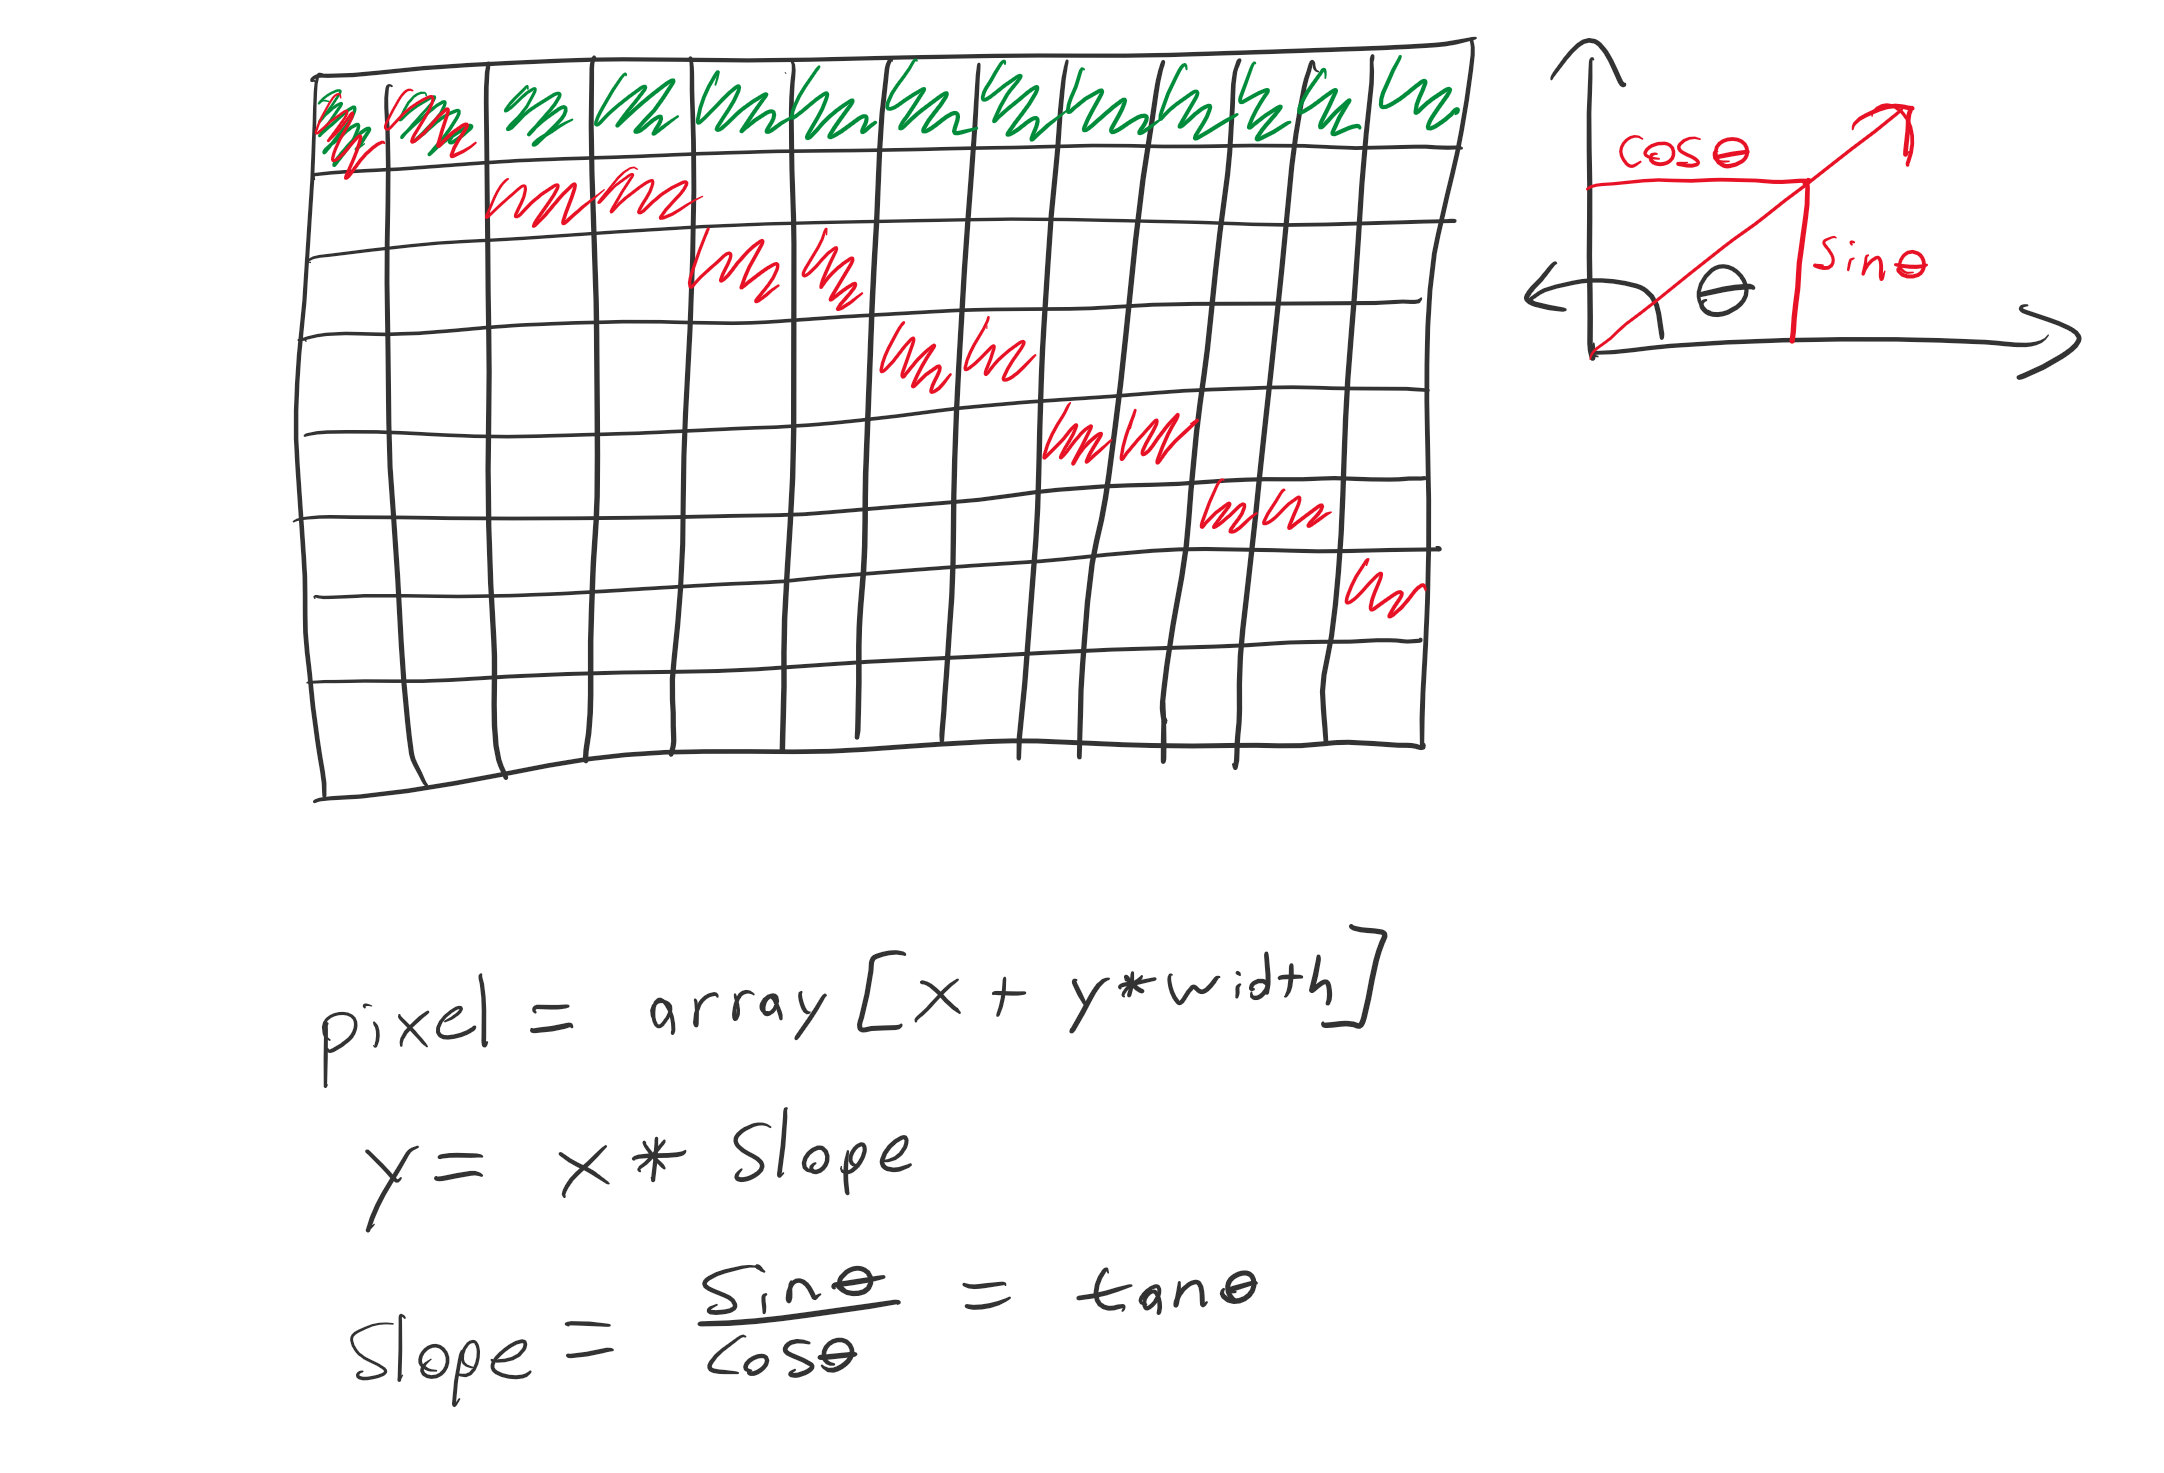 cosθ
sinθ
θ
pixel = array[x + y*width]
y = x * slope
slope = sinθ/cosθ = tanθ